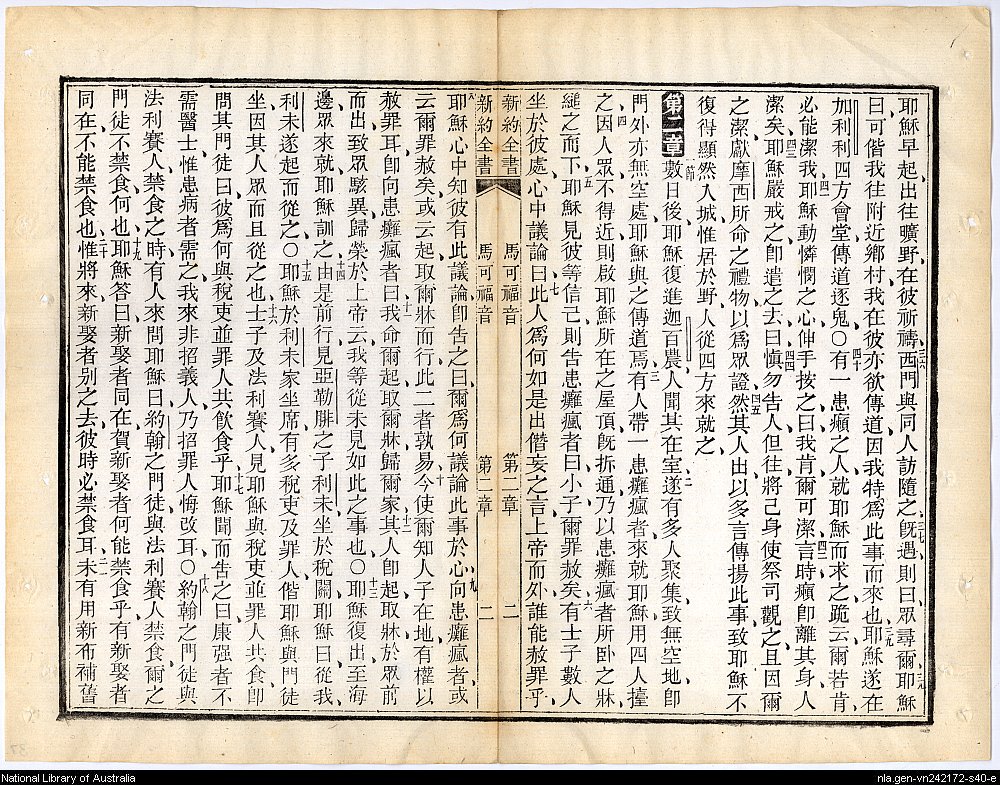 耶穌早起出往曠野在彼祈禱西門與同人訪隨之旣遇則曰眾尋爾耶穌
曰可偕我往附近鄉村我在彼亦欲傳道因我特爲此事而來也耶穌遂在
加利利四方會堂傳道逐鬼〇有一患癩之人就耶穌而求之跪云爾若肯
必能潔我耶穌動憐憫之心伸手按之曰我肯爾可潔言時癩卽離其身人
潔矣耶穌嚴戒之卽遣之去曰愼勿告人但往將己身使祭司觀之且因爾
之潔獻摩西所命之禮物以爲眾證然其人出以多言傳揚此事致耶穌不
復得顯然入城惟居於野人從四方來就之
第二章 一節 數日後耶穌復進迦百農人聞其在室遂有多人聚集致無空地卽
門外亦無空處耶穌與之傳道焉有人帶一患癱瘋者來就耶穌用四人擡
之因人眾不得近則啟耶穌所在之屋頂旣拆通乃以患癱瘋者所卧之牀
縋之而下耶穌見彼等信己則告患癱瘋者曰小子爾罪赦矣有士子數人
坐於彼處心中議論曰此人爲何如是出僭妄之言上帝而外誰能赦罪乎
新約全書 馬可福音 第二章 二
新約全書 馬可福音 第二章 二
耶穌心中知彼有此議論卽告之曰爾爲何議論此事於心向患癱瘋者或
云爾罪赦矣或云起取爾牀而行此二者孰易今使爾知人子在地有權以
赦罪耳卽向患癱瘋者曰我命爾起取爾牀歸爾家其人卽起取牀於眾前
而出致眾駭異歸榮於上帝云我等從未見如此之事也〇耶穌復出至海
邊眾來就耶穌訓之由是前行見亞勒腓之子利未坐於稅關耶穌曰從我
利未遂起而從之〇耶穌於利未家坐席有多稅吏及罪人偕耶穌與門徒
坐因其人眾而且從之也士子及法利賽人見耶穌與稅吏並罪人共食卽
問其門徒曰彼爲何與稅吏並罪人共飲食乎耶穌聞而告之曰康强者不
需醫士惟患病者需之我來非招義人乃招罪人悔改耳〇約翰之門徒與
法利賽人禁食之時有人來問耶穌曰約翰之門徒與法利賽人禁食爾之
門徒不禁食何也耶穌答曰新娶者同在賀新娶者何能禁食乎有新娶者
同在不能禁食也惟將來新娶者別之去彼時必禁食耳未有用新布補舊
National Library of Australia
nla.gen-vn242172-s40-e